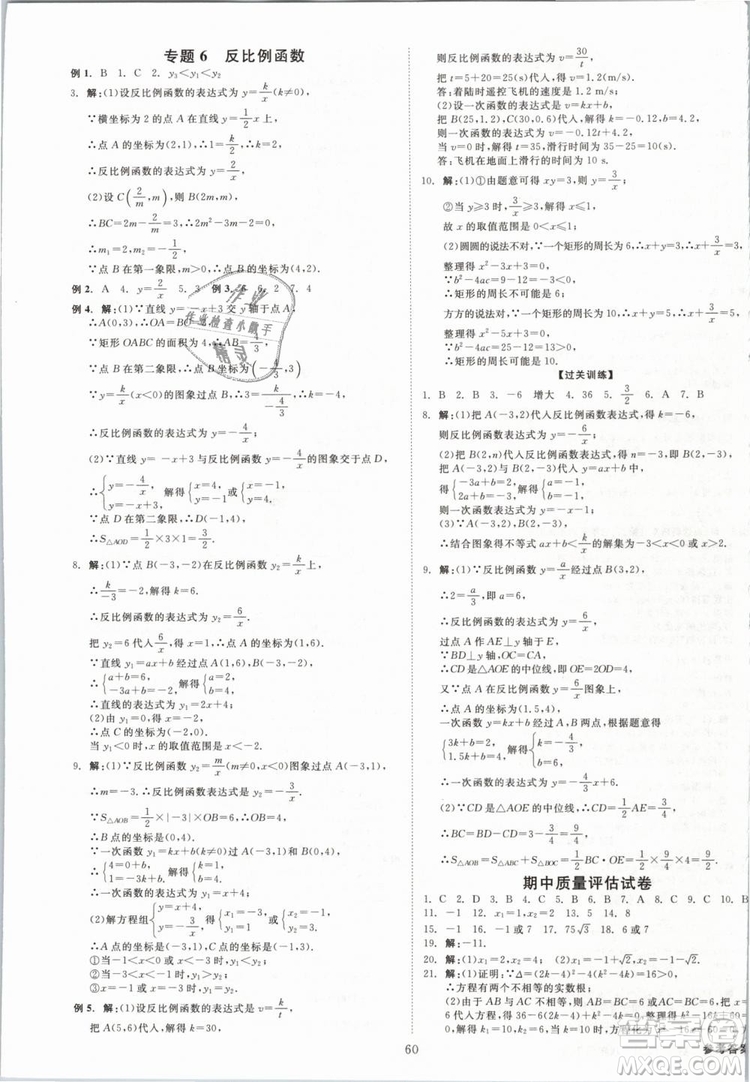 专题6 反比例函数
例1. B 1. C 2. y₃<y₁<y₂
3. 解:(1)设反比例函数的表达式为y=k/x(k≠0),
∵横坐标为2的点A在直线y=1/2x上,
∴点A的坐标为(2,1),∴1=k/2,∴k=2,
∴反比例函数的表达式为y=2/x.
(2)设C(2/m,m),则B(2m,m),
∴BC=2m-2/m=3,∴2m²-3m-2=0,
∴m₁=2,m₂=-1/2.
∵点B在第一象限,m>0,∴点B的坐标为(4,2).
例2. A 4. y=2/x 5. 3 例3. 6
例4. 解:(1)∵直线y=-x+3交y轴于点A,
∴A(0,3),∴OA=
∵矩形OABC的面积为4,
∴点B的坐标为(-4/3,3).
∵y=k/x(x<0)的图象过点B,∴3=k/(-4/3),∴k=-4.
∴反比例函数的表达式为y=-4/x;
(2)∵直线y=-x+3与反比例函数y=-4/x的图象交于点D,
∴{y=-4/x, y=-x+3, 解得{x=-1, y=4 或{x=4, y=-1.
∵点D在第二象限,∴点D的坐标为(-1,4),
∴S△AOD=1/2×3×1=3/2.
8. 解:(1)∵点B(-3,-2)在反比例函数y₂=k/x的图象上,
∴k/-3=-2,解得k=6.
∴反比例函数的表达式为y₂=6/x.
把y₂=6代入6/x,得x=1,∴点A的坐标为(1,6).
∵直线y₁=ax+b经过点A,B,
∴{a+b=6, -3a+b=-2, 解得{a=2, b=4.
∴直线的表达式为y₁=2x+4;
(2)由y₁=0,得2x+4=0,解得x=-2,
∴点C的坐标为(-2,0).
当y₁<0时,x的取值范围是x<-2.
9. 解:(1)∵反比例函数y₂=m/x的图象过点A(-1,3),
∴m=-3.∴反比例函数的表达式为y₂=-3/x.
∵S△AOB=1/2×|-3|×OB=6,∴OB=4,
∴B点的坐标是(0,4).
∵一次函数y₁=kx+b的图象过A(-1,3)和B(0,4),
∴{4=0+b, 3=-k+b, 解得{k=1, b=4, ∴一次函数的表达式为y₁=x+4;
(2)解方程组{y=x+4, y=-3/x, 得{x₁=-1, y₁=3 或{x₂=-3, y₂=1.
①当-1<x<0或x<-3时,y₁<y₂;
②当x=-1或x=-3时,y₁=y₂;
③当-3<x<-1或x>0时,y₁>y₂.
例5. 解:(1)设反比例函数的表达式为v=k/t,
把A(5,6)代入,解得k=30,
则反比例函数的表达式为v=30/t.
把t=5+20=25(s)代入,得v=1.2(m/s).
答:着陆时遥控飞机的速度为1.2 m/s.
(2)设一次函数的表达式为v=kx+b,
把B(25,1.2),C(30,0.6)代入,解得k=-0.12,b=4.2,
则一次函数的表达式为v=-0.12t+4.2.
当v=0时,t=35,则滑行的时间为35-25=10(s).
答:飞机在地面上滑行的时间为10 s.
10. 解:(1)①由题意可得xy=3,则y=3/x;
②当y≥3时,3/x≥3,解得x≤1,
故x的取值范围是0<x≤1.
(2)圆圆的说法不对,∵一个矩形的周长为6,∴x+y=3,∴x+3/x=3,
整理得x²-3x+3=0.∵b²-4ac=9-12=-3<0,
∴矩形的周长不可能是6;
方方的说法正确,∵一个矩形的周长为10,∴x+y=5,∴x+3/x=5,
整理得x²-5x+3=0,∵b²-4ac=25-12=13>0,
∴矩形的周长可能是10.
【过关训练】
1. B 2. B 3. -6 增大 4. 36 5. 3/2 6. A 7. B
8. 解:(1)把A(-3,2)代入反比例函数可得k=-6,
则反比例函数的表达式为y=-6/x;
(2)把B(2,n)代入反比例函数可得n=-3,∴B(2,-3).
把A(-3,2)和B(2,-3)代入一次函数y=ax+b中,
得{-3a+b=2, 2a+b=-3, 解得{a=-1, b=-1.
则一次函数的表达式为y=-x-1;
(3)∵A(-3,2),B(2,-3),
∴结合图象得不等式ax+b<k/x的解集为-3<x<0或x>2.
9. 解:(1)∵反比例函数y=a/x的图象过点B(3,2),
∴2=a/3,即a=6,
∴反比例函数的表达式为y=6/x,
过点A作AE⊥y轴于E,
∵BD⊥y轴,OC=CA,
∴CD是△AOE的中位线,即OE=2OD=4,
又∵点A在反比例函数y=6/x图象上,
∴点A的坐标为(1.5,4).
一次函数y=kx+b过A、B两点,根据题意得
{3k+b=2, 3/2k+b=4, 解得{k=-4/3, b=6.
∴一次函数的表达式为y=-4/3x+6;
(2)∵CD是△AOE的中位线,∴CD=1/2AE=3/4,
∴BC=BD-CD=3-3/4=9/4,
∴S△AOB=S△ABC+S△BOC=1/2BC·OE=9/2.
期中质量评估试卷
11. -1 12. 4 13. 8 14. 6
15. -1 16. -1或7 17. 75√3 18. 6或7
19. 解:-11.
20. 解:(1)x₁=-2,x₂=4;(2)x₁=-1+√2,x₂=-1-√2.
21. (1)证明:∵Δ=(2k-4)²-4(k²-4k)=16>0,
∴方程有两个不相等的实数根;
60
参考答案